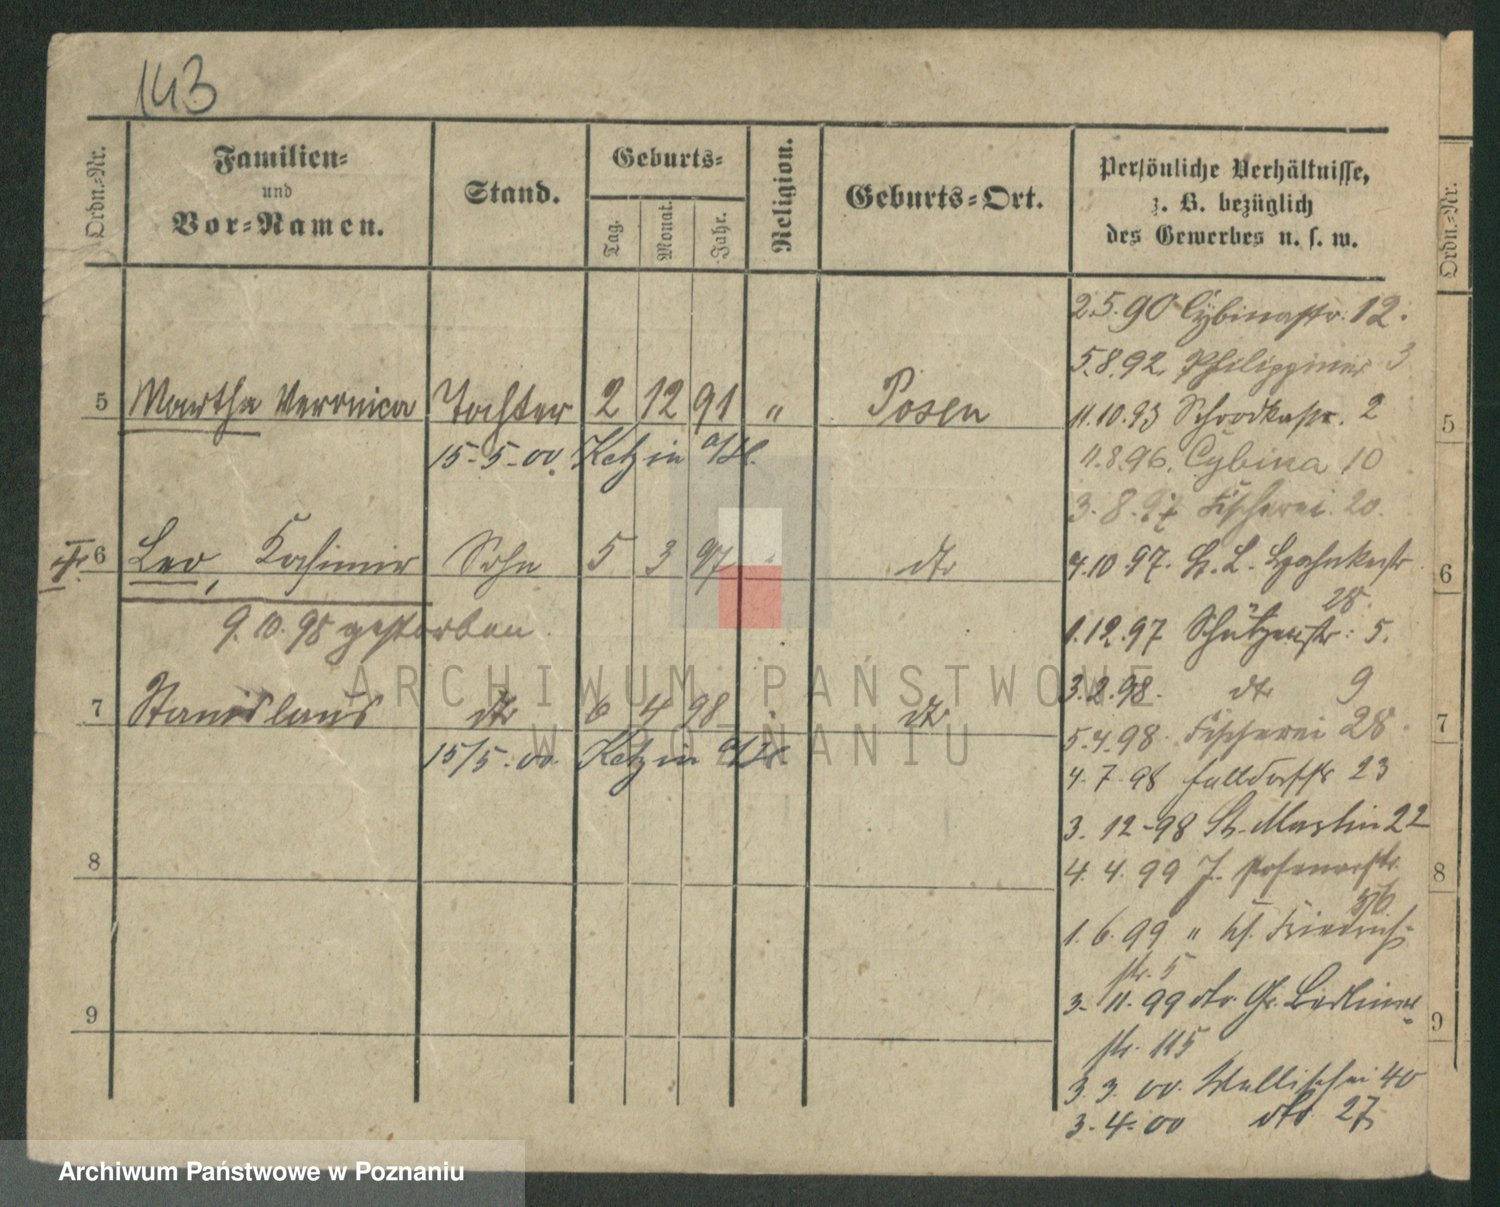 143
Ordn.-Nr.
Familien-
und
Vor-Namen.
Stand.
Geburts-
Tag.
Monat.
Jahr.
Religion.
Geburts-Ort.
Persönliche Verhältnisse,
z. B. bezüglich
des Gewerbes u. s. w.
Ordn.-Nr.
2.5.90 Cybinastr. 12.
5.8.92. Philippiner 3
5 Martha Veronica Tochter 2 12 91 " Posen
11.10.93 Schrodkastr. 2
5
15-5-00. Ketzin a/H.
11.8.96. Cybina 10
3.8.97 Fischerei 20.
6 Leo, Kasimir Sohn 5 3 97 " dto
4.10.97.
28.
6
9.10.98 gestorben.
1.12.97 Schützenstr: 5.
3.2.98. dto 9
7 Stanislaus dto 6 4 98 dto
5.4.98. Fischerei 28.
7
15/5.00. Ketzin a/H.
4.7.98 Halldorfstr 23
3.12-98 St. Martin 22
8
4.4.99 J. Posenerstr.
8
1.6.99 " Kl. Friedrich-
str. 5
3.11.99 dto. Gr. Berliner-
9
str. 115
9
3.3.00. Wallischei 40
3.4.00 dto 27
ARCHIWUM PAŃSTWOWE
W POZNANIU
Archiwum Państwowe w Poznaniu